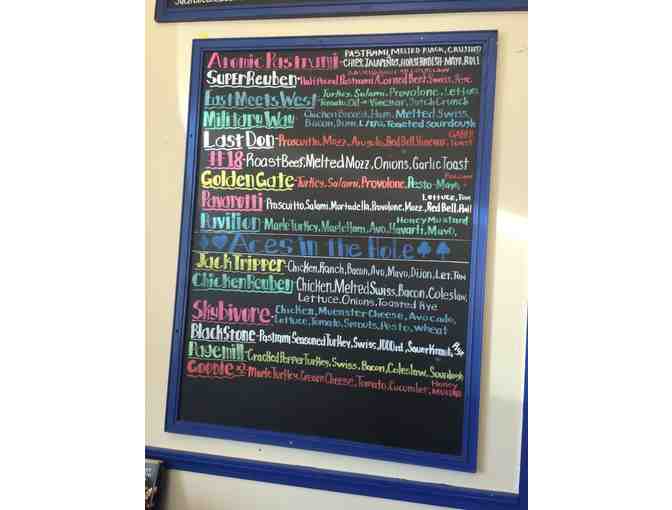 Atomic Pastrami - PASTRAMI, MELTED JACK, CRUSHED
CHIPS, JALAPEÑOS, HORSERADISH-MAYO, ROLL
Super Reuben - Half Pound Pastrami /Corned Beef, Swiss, Rye
East Meets West - Turkey, Salami, Provolone, Lettuce
Tomato, Oil & Vinegar, Dutch Crunch
Military Way - Chicken Breast, Ham, Melted Swiss,
Bacon, Toasted Sourdough
Last Don - Proscuitto, Mozz, Arugula, Red Bell, Vinegar, Garlic Toast
#18 - Roast Beef, Melted Mozz, Onions, Garlic Toast
Golden Gate - Turkey, Salami, Provolone, Pesto-Mayo,
Pavarotti - Proscuitto, Salami, Mortadella, Provolone, Mozz, Red Bell, Roll
Lettuce, Tom
Pavilion - Maple Turkey, Maple Ham, Avo, Havarti, Mayo,
Honey Mustard
Aces in the Hole
Jack Tripper - Chicken, Ranch, Bacon, Avo, Mayo, Dijon, Let, Tom
Chicken Reuben - Chicken, Melted Swiss, Bacon, Coleslaw,
Lettuce, Onions, Toasted Rye
Skybivore - Chicken, Muenster Cheese, Avocado,
Lettuce, Tomato, Sprouts, Pesto, Wheat
BlackStone - Pastrami Seasoned Turkey, Swiss, 1000 isl, Sauerkraut, Rye
Pagemill - Cracked Pepper Turkey, Swiss, Bacon, Coleslaw, Sourdough
Google - Maple Turkey, Cream Cheese, Tomato, Cucumber,
Honey Mustard